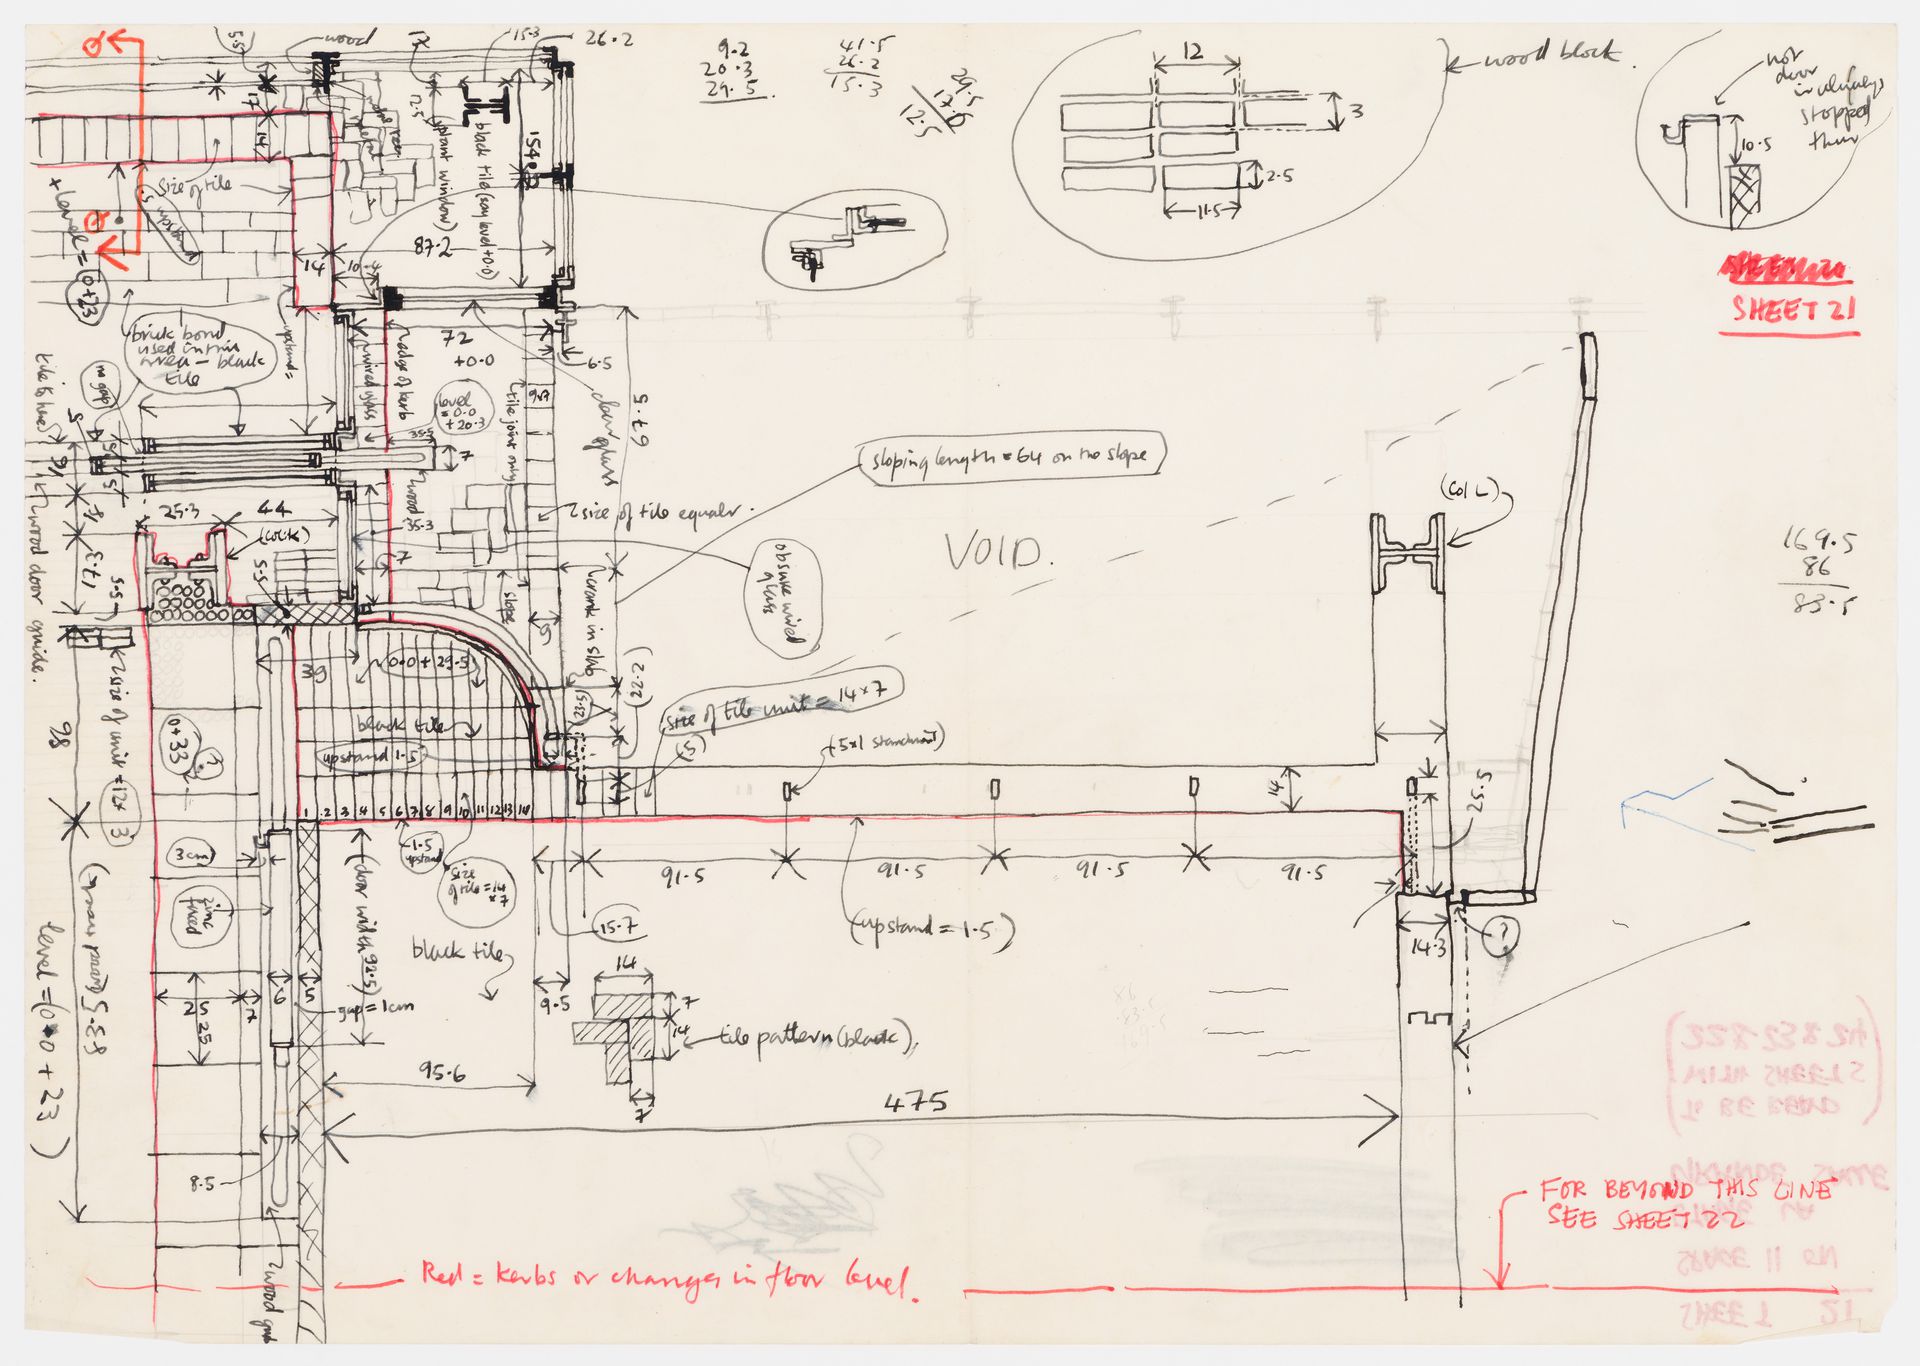 5.5
wood
12
15.3
26.2
9.2
20.3
29.5
41.5
26.2
15.3
29.5
17.0
12.5
12
3
2.5
11.5
wood block.
not
door
stopped
10.5
SHEET 21
17
14
size of tile
upstand
+ level = 0+23
12.5
black tile (say level +0.0)
154.2
87.2
14
10
upstand =
brick bond
used in this
area – black
tile
no gap
tile to here
wired glass
edge of kerb
72
+0.0
level
= 0.0
+ 20.3
35.5
7
tile joint only
9x7
6.5
clear glass
67.5
sloping length = 64 on the slope
size of tile equals.
VOID.
(COL L)
169.5
86
83.5
25.3
44
(COL K)
wood
35.3
7
obscure wired
glass
slope
crank in slab
17.3
5.5
wood door guide.
size of unit = 12x3
39
0.0 + 29.5
black tile
upstand 1.5
23.5
(22.2)
size of tile unit = 14x7
(5)
(5x1 stanchion)
14
25.5
0+33
?
98
1 2 3 4 5 6 7 8 9 10 11 12 13 14
1.5
upstand
size
of tile = 14
x 7
3cm
zinc
fixed
(door width 92.5)
91.5
91.5
91.5
91.5
15.7
(upstand = 1.5)
14.3
?
black tile
25
7
25
6
5
gap = 1cm
9.5
14
7
14
7
tile pattern (black).
95.6
475
level = (0.0 + 23)
8.5
wood
FOR BEYOND THIS LINE
SEE SHEET 22
Red = kerbs or changes in floor level.